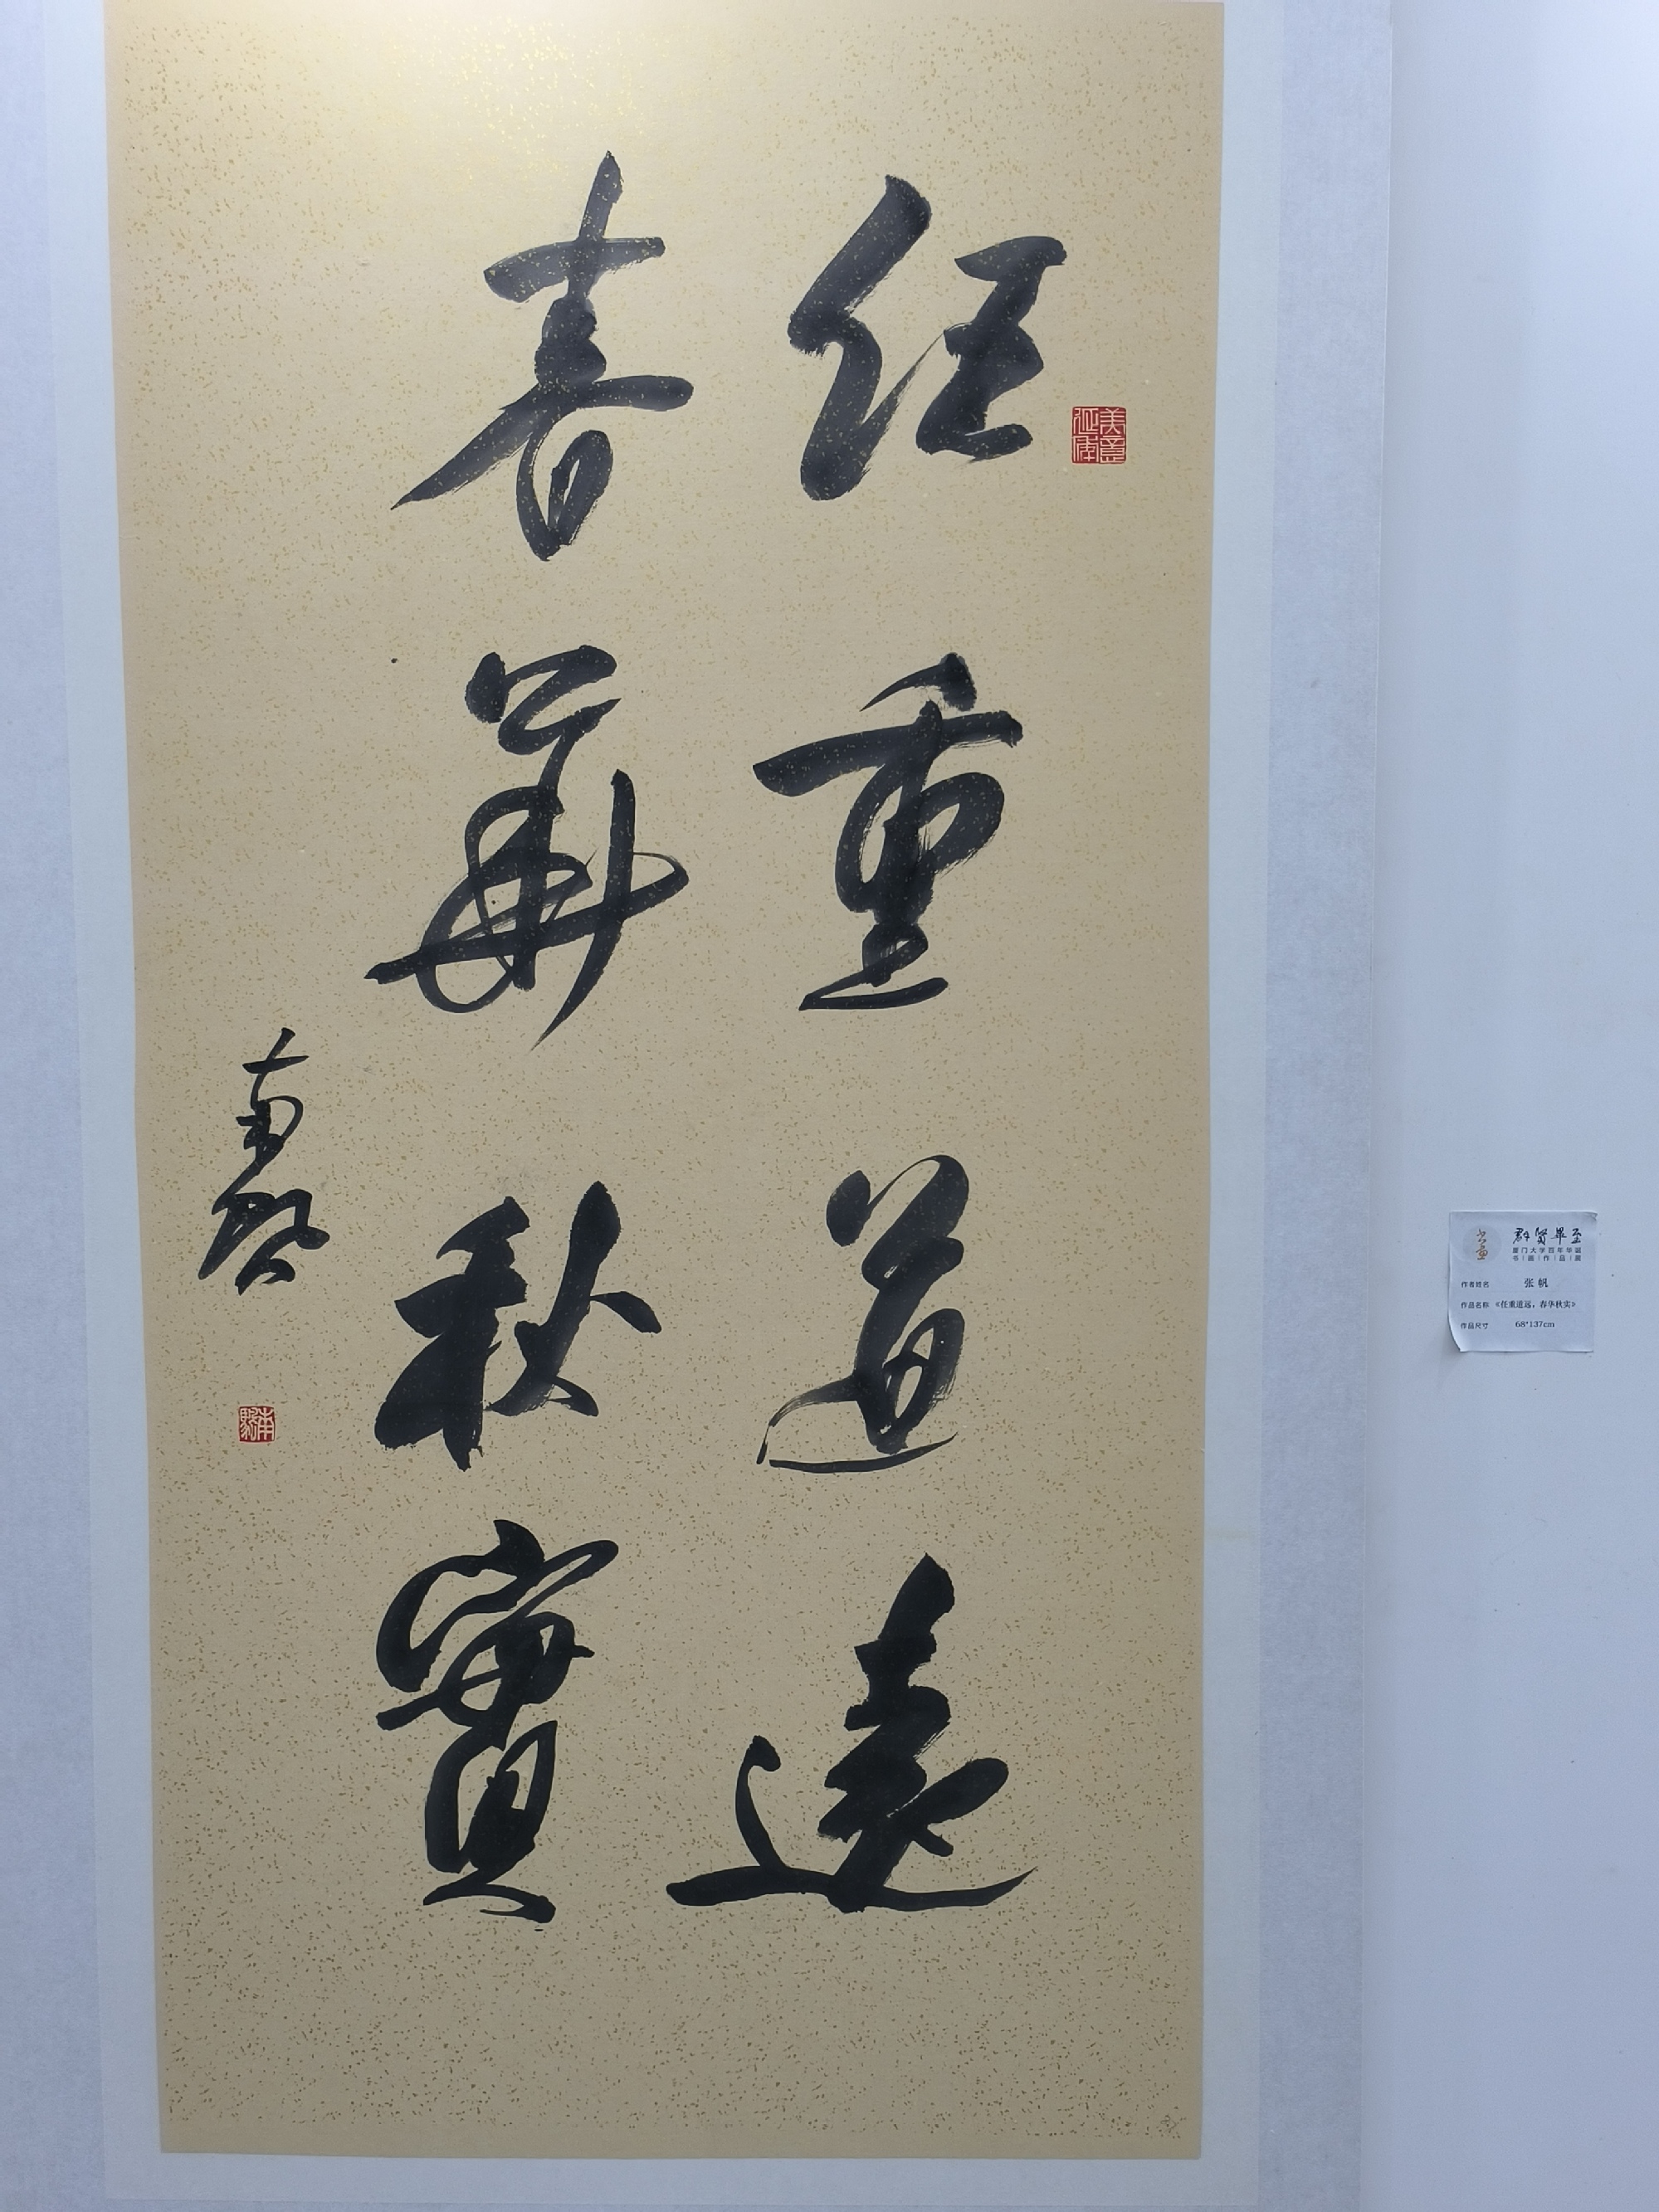 任重道遠
春華秋實
美意延年
群贤毕至
厦门大学百年华诞
书|画|作|品|展
作者姓名 张帆
作品名称 《任重道远，春华秋实》
作品尺寸 68*137cm